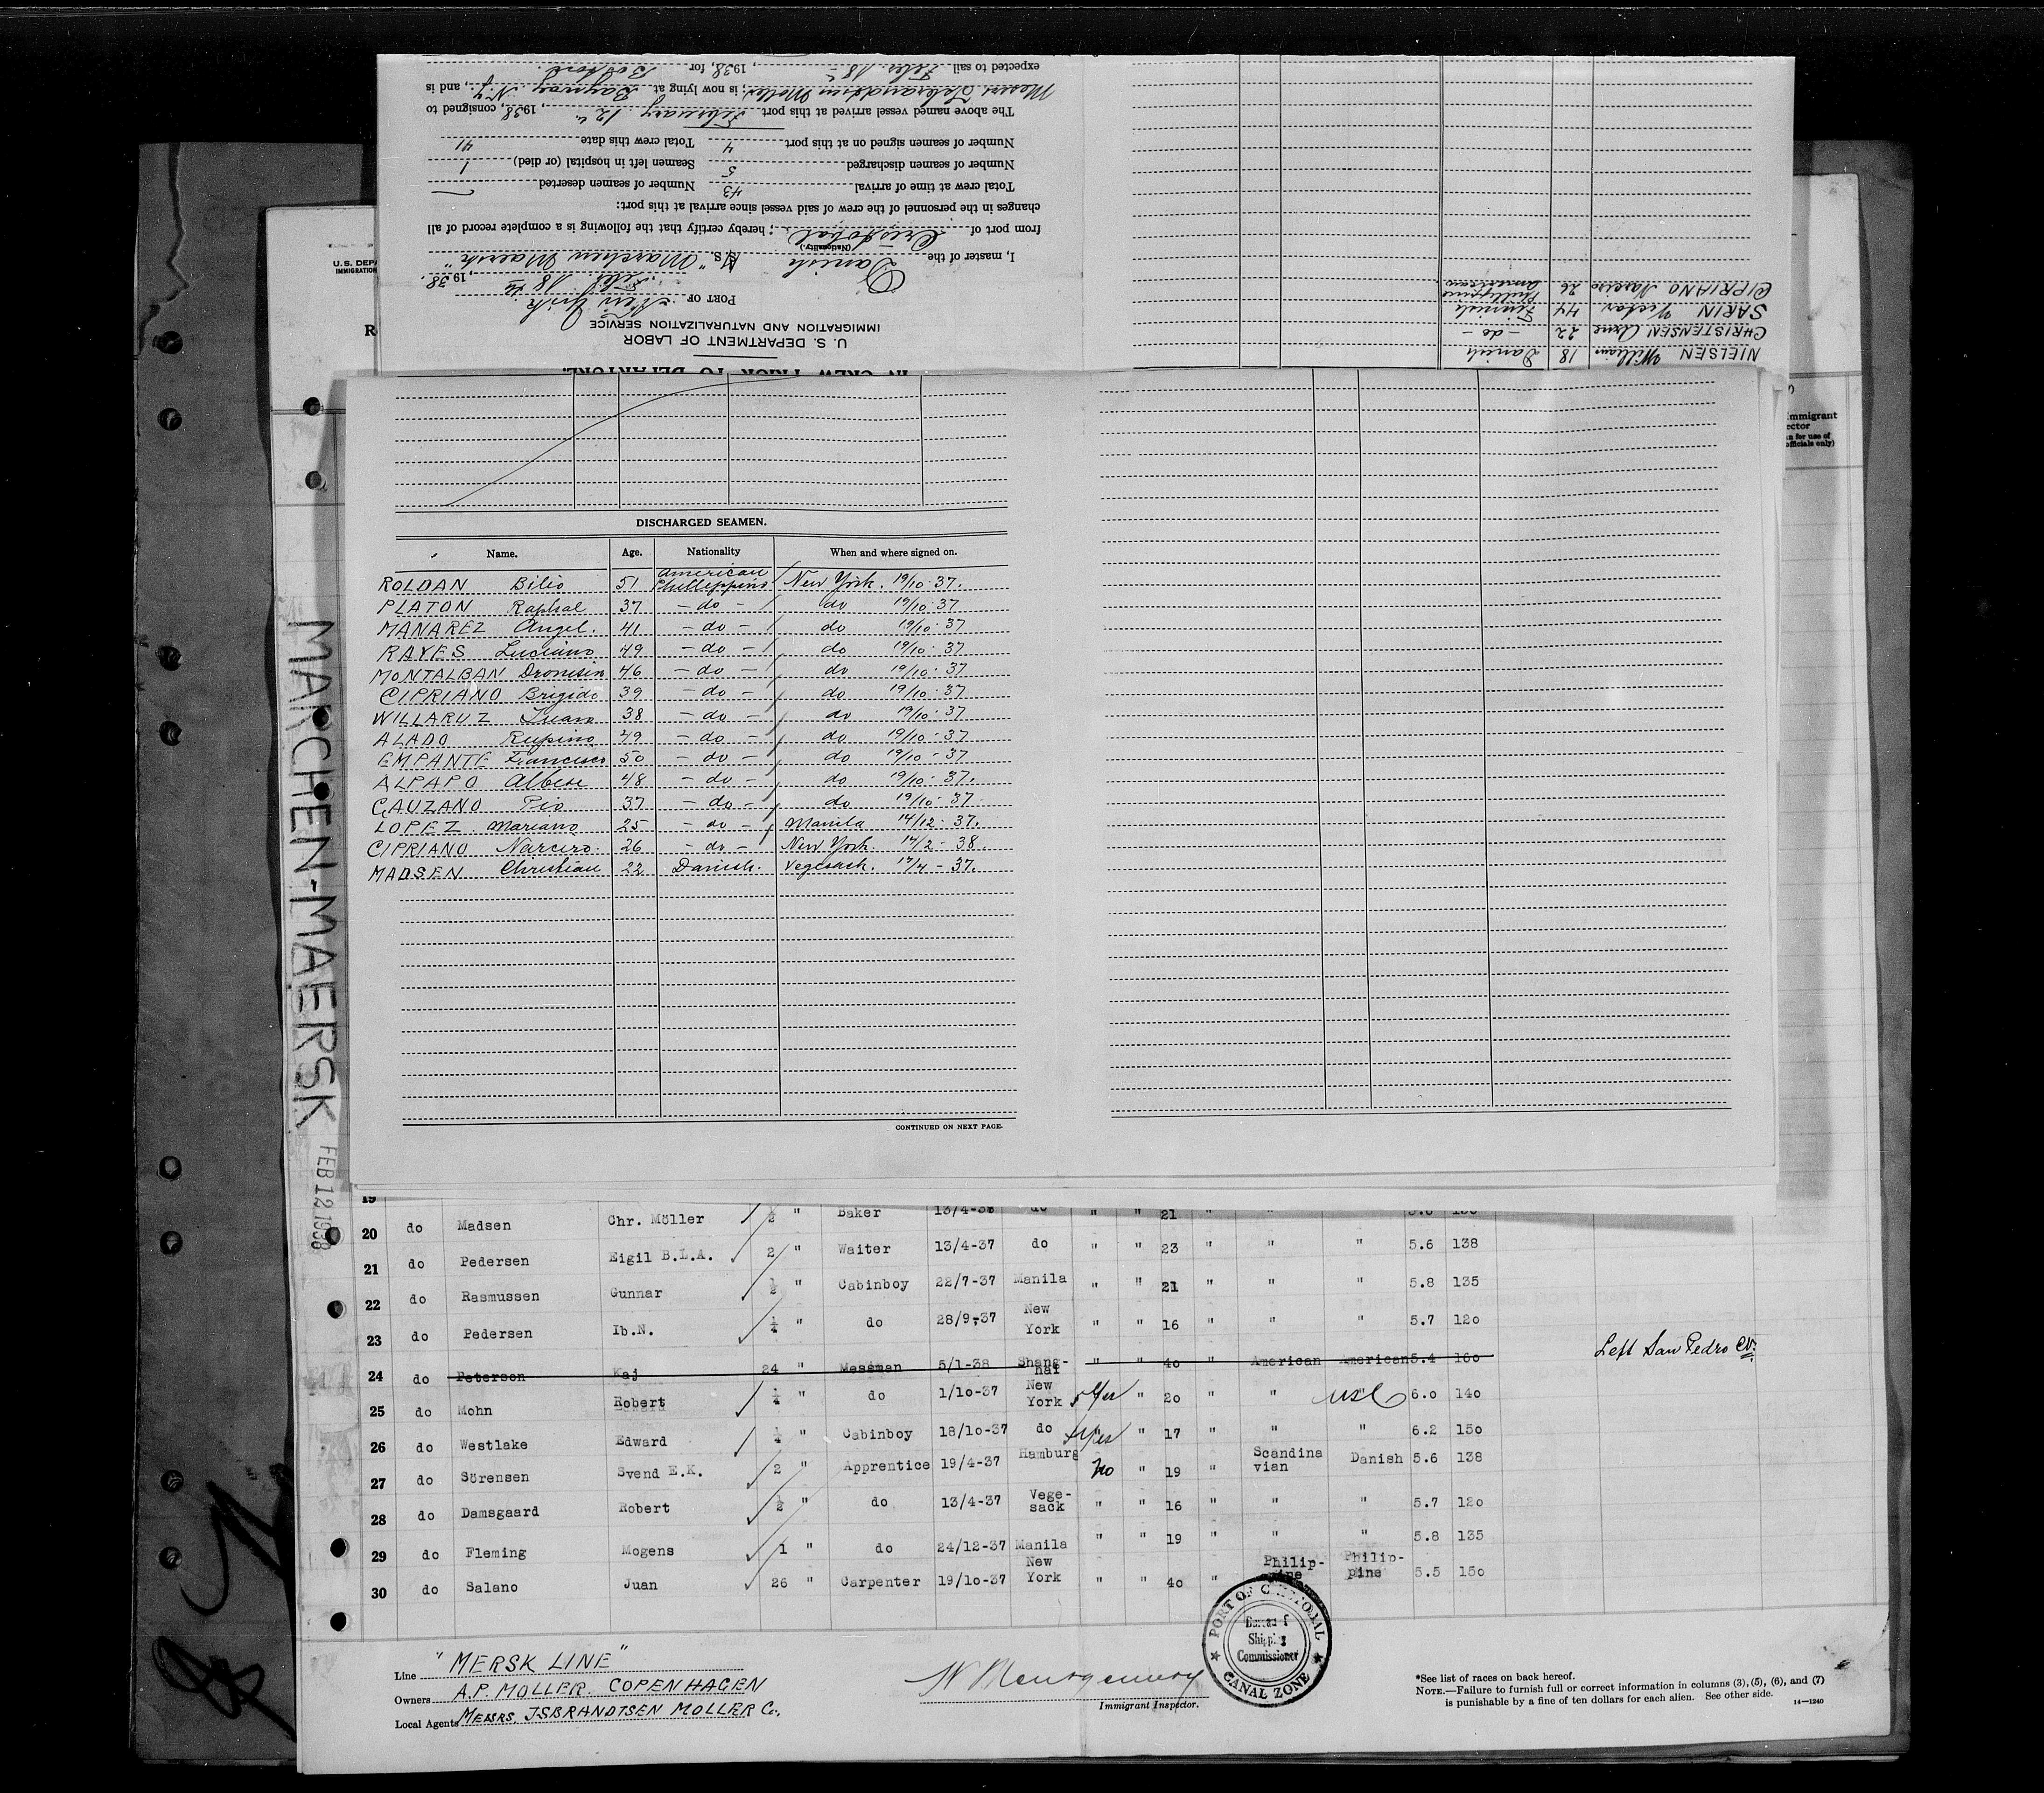 U. S. DEPARTMENT OF LABOR
IMMIGRATION AND NATURALIZATION SERVICE
PORT OF New York
Feb. 18th, 1938.
I, master of the Danish M.S. "Marchen Maersk",
(Nationality.)
from port of Cristobal; hereby certify that the following is a complete record of all
changes in the personnel of the crew of said vessel since arrival at this port:
Total crew at time of arrival 43 Number of seamen deserted —
Number of seamen discharged 5 Seamen left in hospital (or died) 1
Number of seamen signed on at this port 4 Total crew this date 41
The above named vessel arrived at this port February 12, 1938, consigned to
Messrs Isbrandtsen Moller, is now lying at Bayway N.J., and is
expected to sail Feb. 18, 1938, for
NIELSEN William 18 Danish
CHRISTENSEN Arne 22 - do -
SARIN Victor 44 Finnish
CIPRIANO Narciso 26 Philippine American
U.S. DEPA
IMMIGRATION
R
mmigrant
ector
n for use of
officials only)
DISCHARGED SEAMEN.
Name. Age. Nationality When and where signed on.
ROLDAN Bilio 51 American Phillippino New York. 19/10-37.
PLATON Raphal 37 - do - do 19/10-37
MANAREZ Angel. 41 - do - do 19/10-37
RAYES Luciano 49 - do - do 19/10-37
MONTALBAN Dronisin 46 - do - do 19/10-37
CIPRIANO Brigido 39 - do - do 19/10-37
WILLARUZ Juan 38 - do - do 19/10-37
ALADO Rupino 49 - do - do 19/10-37
EMPANTE Francisco 50 - do - do 19/10-37
ALPAPO Albese 48 - do - do 19/10-37.
CAUZANO Pio 37 - do - do 19/10-37
LOPEZ Mariano 25 - do - Manila 14/12-37.
CIPRIANO Narciro. 26 - do - New York. 14/2-38.
MADSEN Christian 22 Danish. Vegesack. 17/4-37.
CONTINUED ON NEXT PAGE.
MARCHEN-MAERSK
FEB 12 1938
19
20 do Madsen Chr. Möller ½ " Baker 13/4-38 do " " 21 " "
21 do Pedersen Eigil B.L.A. 2 " Waiter 13/4-37 do " " 23 " " " 5.6 138
22 do Rasmussen Gunnar ½ " Cabinboy 22/7-37 Manila " " 21 " " " 5.8 135
23 do Pedersen Ib.N. ¼ " do 28/9-37 New York " " 16 " " " 5.7 120
24 do Peterson Kaj 24 " Messman 5/1-38 Shang-hai " " 40 " American American 5.4 160 Left San Pedro
25 do Mohn Robert ¼ " do 1/10-37 New York Yes " 20 " " USC 6.0 140
26 do Westlake Edward ¼ " Cabinboy 18/10-37 do Yes " 17 " " " 6.2 150
27 do Sörensen Svend E.K. 2 " Apprentice 19/4-37 Hamburg No " 19 " Scandinavian Danish 5.6 138
28 do Damsgaard Robert ½ " do 13/4-37 Vege-sack " " 16 " " " 5.7 120
29 do Fleming Mogens 1 " do 24/12-37 Manila " " 19 " " " 5.8 135
30 do Salano Juan 26 " Carpenter 19/10-37 New York " " 40 " Philip-pine Philip-pine 5.5 150
Line "MERSK LINE"
Owners A.P. MOLLER. COPENHAGEN
Local Agents MESSRS. ISBRANDTSEN MOLLER Co.,
W Montgomery
Immigrant Inspector.
PORT OF CRISTOBAL
Bureau of
Shipping
Commissioner
CANAL ZONE
*See list of races on back hereof.
NOTE.—Failure to furnish full or correct information in columns (3), (5), (6), and (7)
is punishable by a fine of ten dollars for each alien. See other side. 14—1240